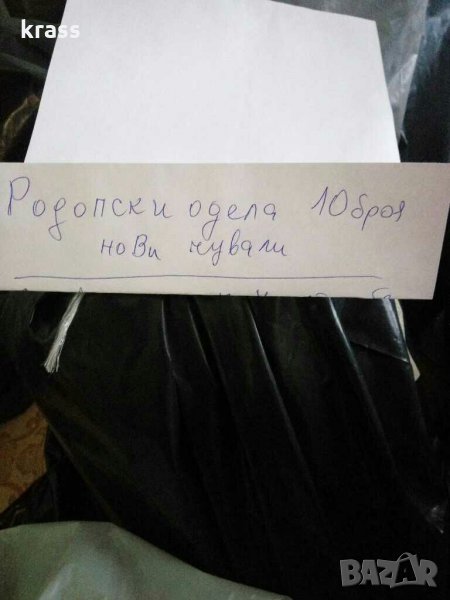 krass
Родопски одела 10броя
нови чували
BAZAR